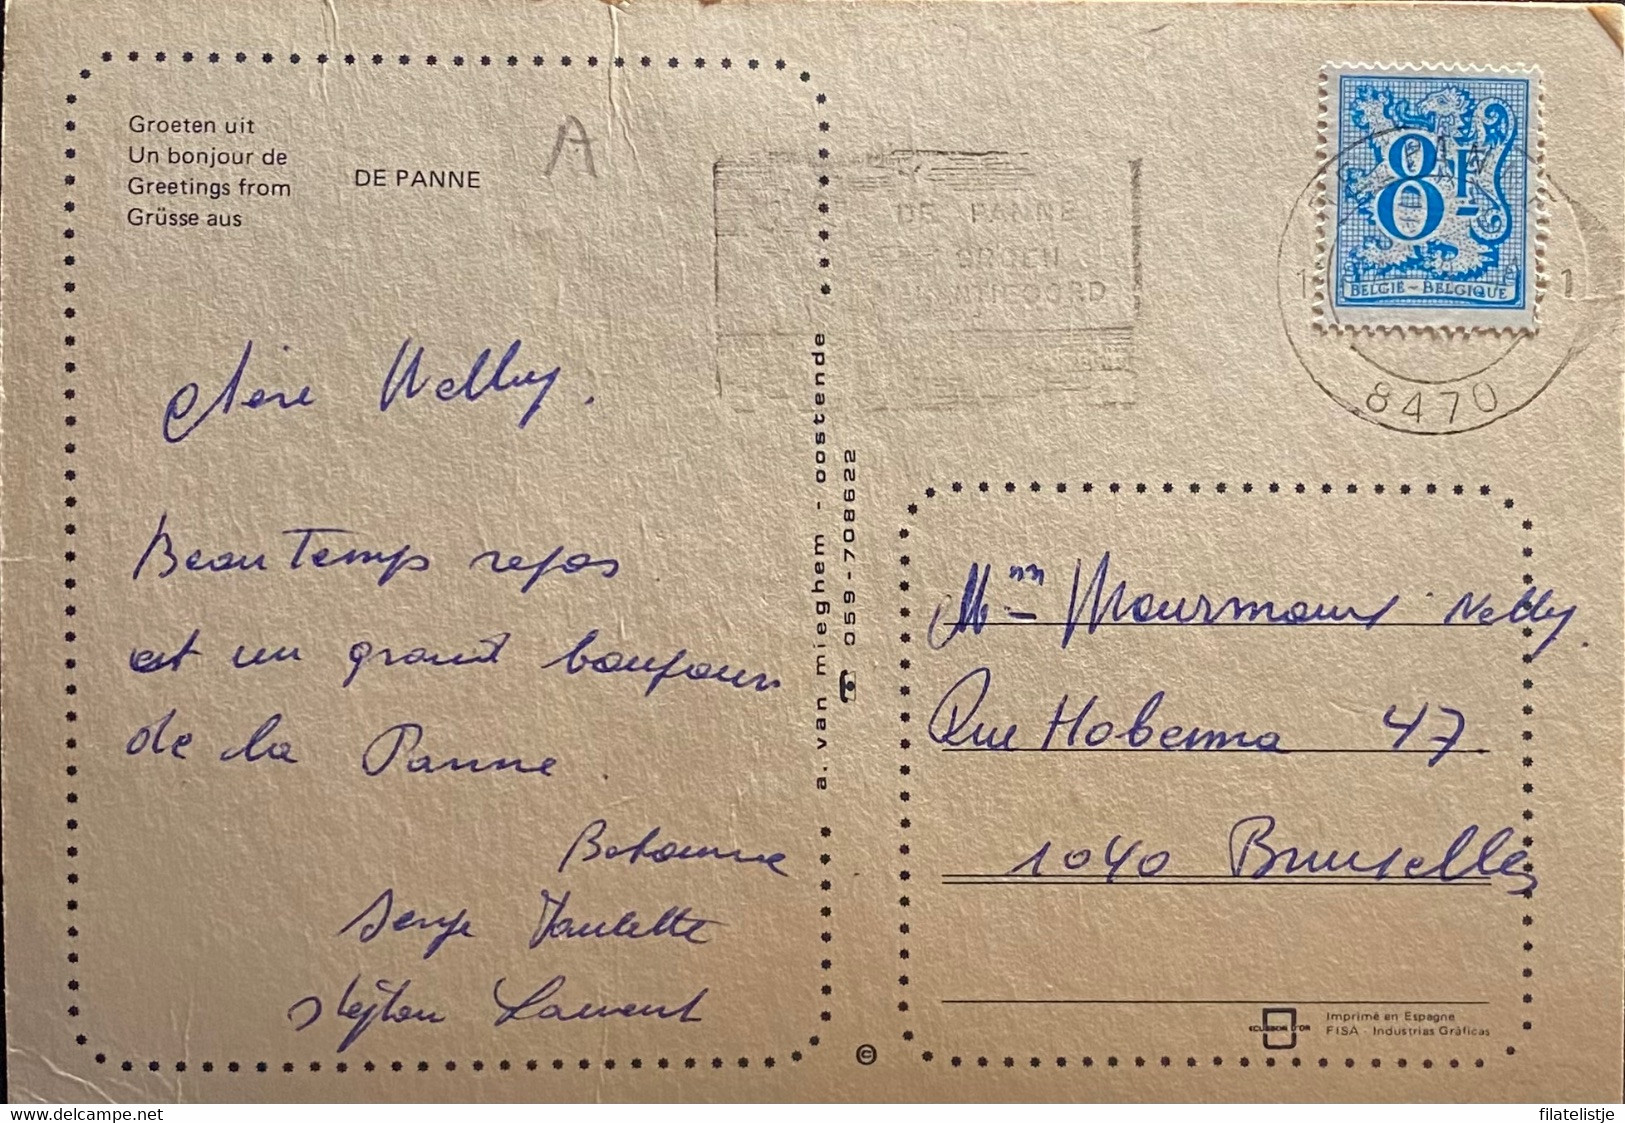 Groeten uit
Un bonjour de
Greetings from
Grüsse aus
DE PANNE
A
DE PANNE
GROEN
8F-
BELGIË - BELGIQUE
8470
chère Nelly.
Beau Temps repos
et un grand bonjour
de la Panne.
Serge Paulette
Laurent
a. van mieghem - oostende
059-708622
Mme Nelly.
Rue 47
1040 Bruxelles
ECUSSON D'OR
Imprimé en Espagne
FISA - Industrias Gráficas
©
www.delcampe.net
filatelistje